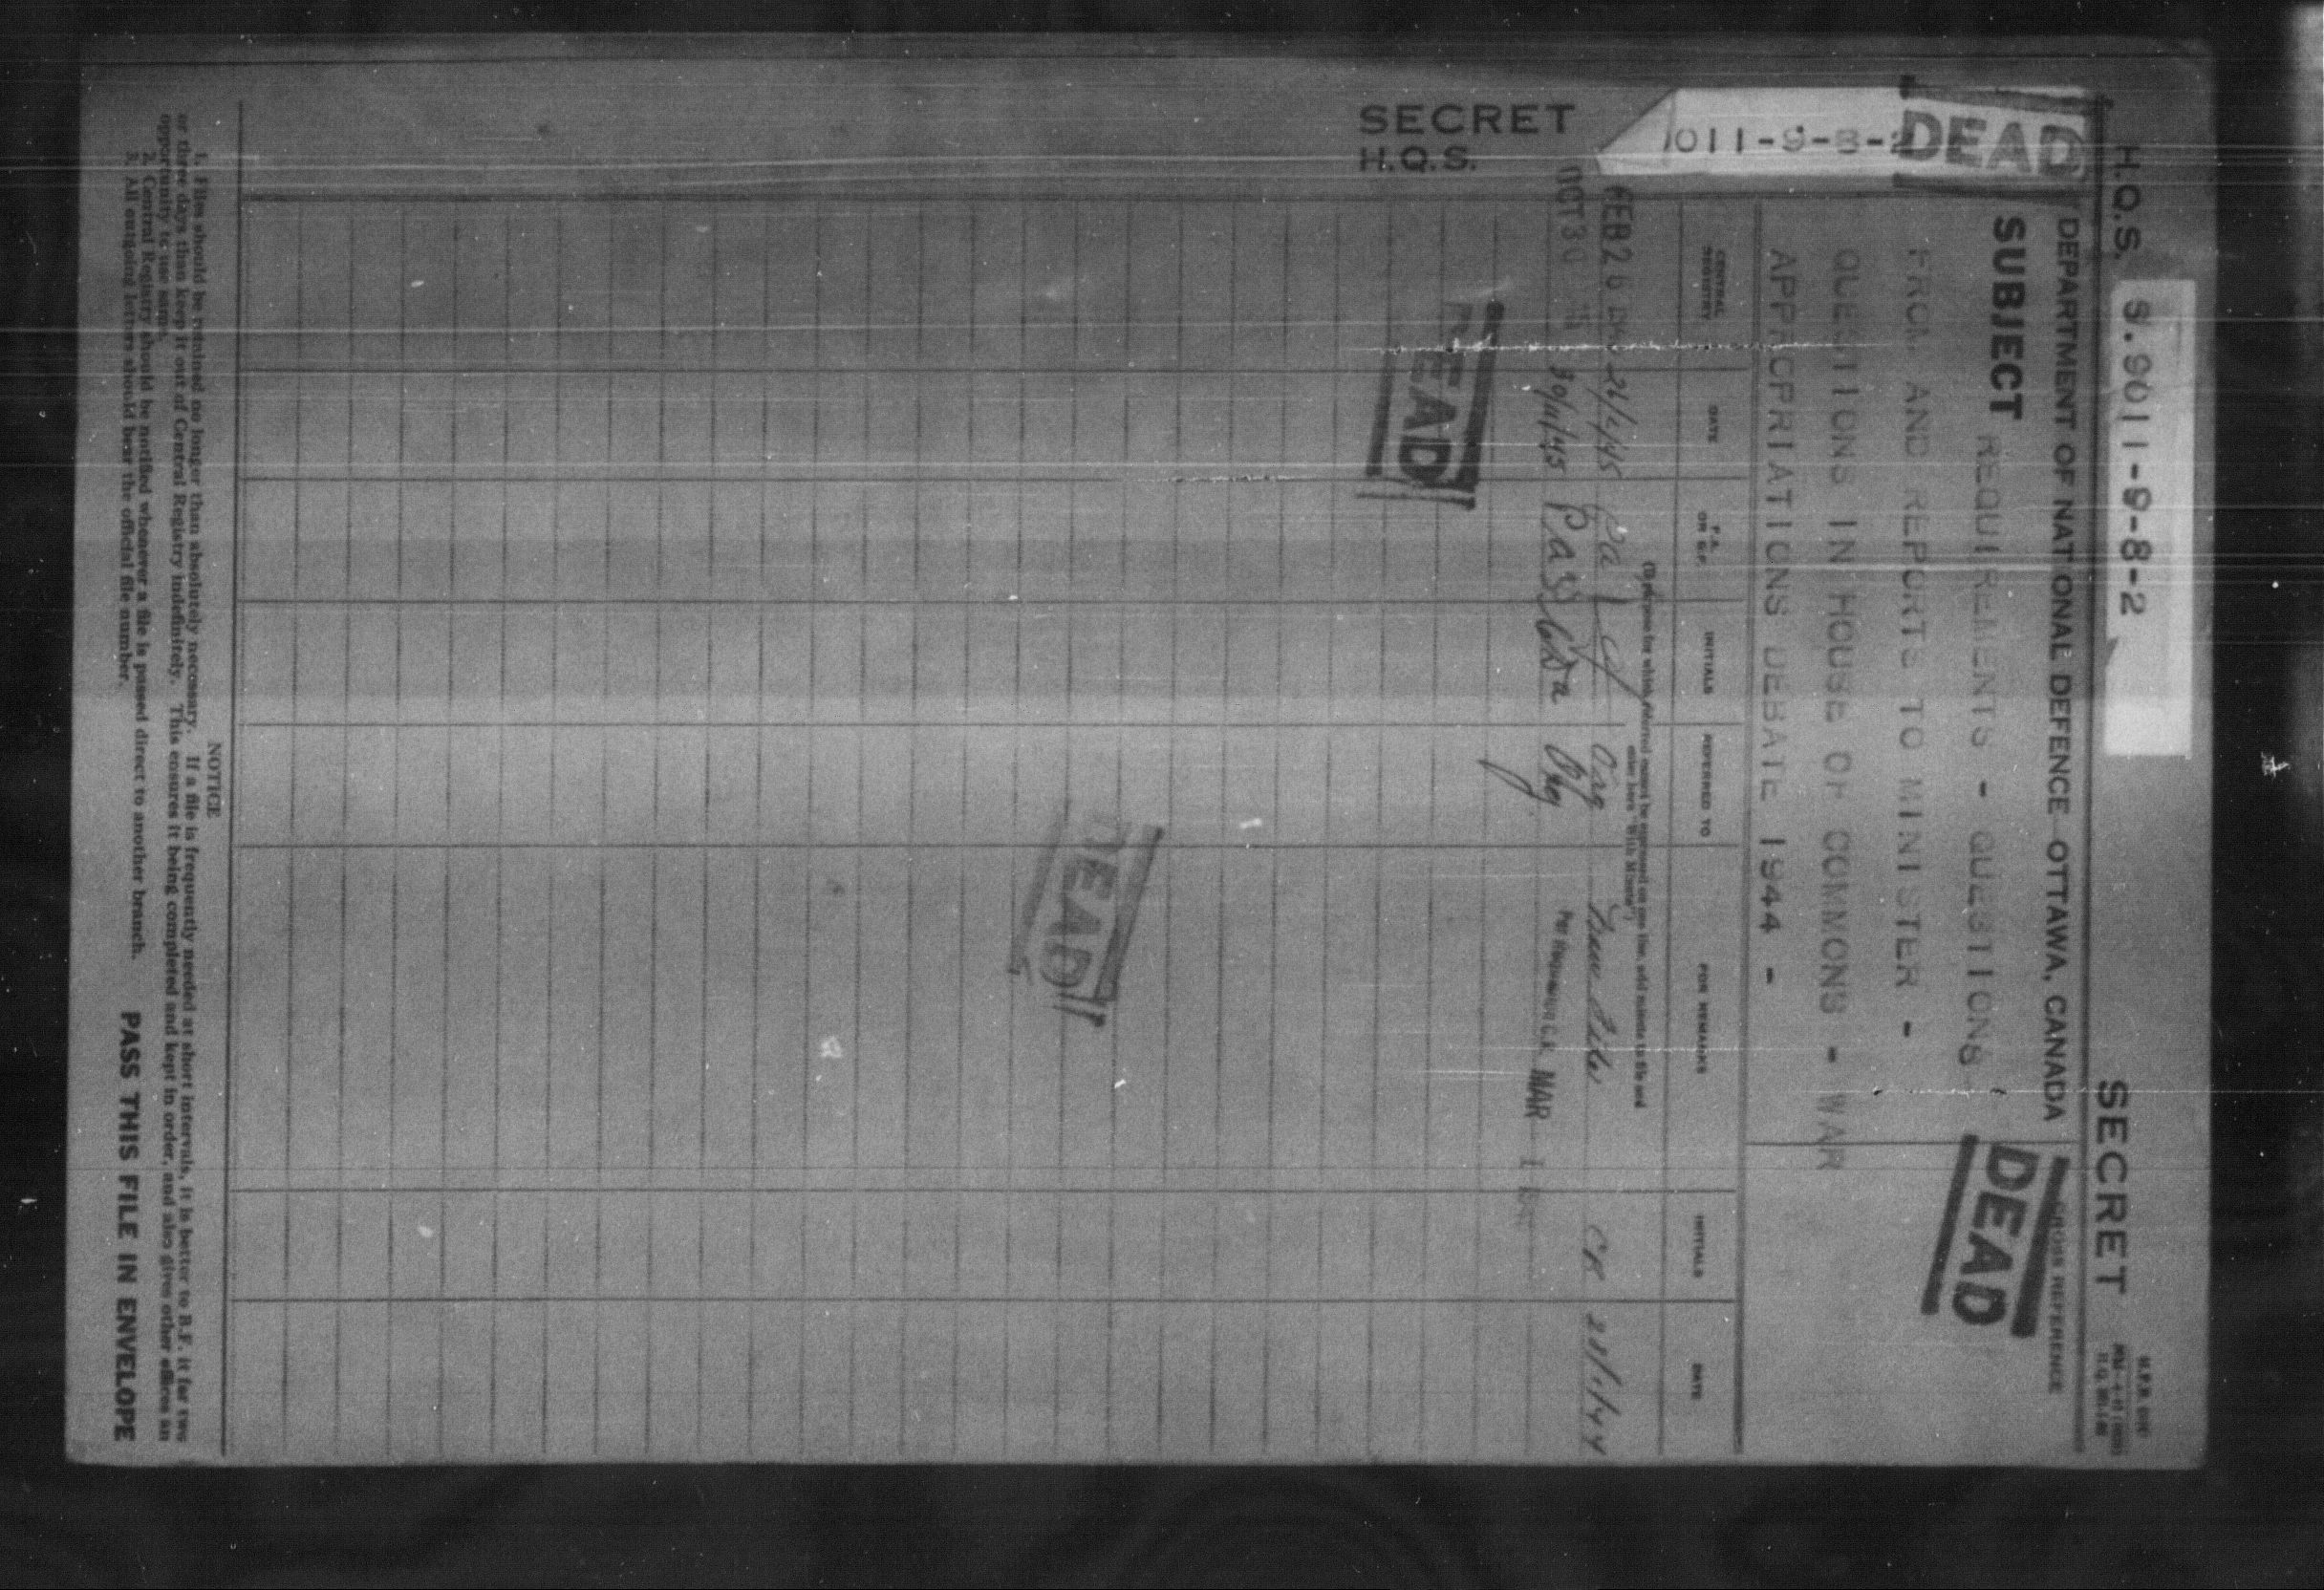 H.Q.S. S.9011-9-8-2 SECRET
DEPARTMENT OF NATIONAL DEFENCE OTTAWA, CANADA
CROSS REFERENCE
DEAD
SECRET
H.Q.S.
9011-9-8-2
DEAD
SUBJECT REQUIREMENTS - QUESTIONS
FROM AND REPORTS TO MINISTER -
QUESTIONS IN HOUSE OF COMMONS - WAR
APPROPRIATIONS DEBATE 1944 -
CENTRAL REGISTRY DATE P.A. OR B.F. INITIALS REFERRED TO FOR REMARKS INITIALS DATE
(If purpose for which referred cannot be expressed on one line, add minute to file and
enter here "With Minute")
FEB 26 26/2/45 Pa New File CK 28/1/44
OCT 30 30/11/45 Pa MAR 1
DEAD
DEAD
NOTICE
1. Files should be retained no longer than absolutely necessary. If a file is frequently needed at short intervals, it is better to B.F. it for two
or three days than keep it out of Central Registry indefinitely. This ensures it being completed and kept in order, and also gives other offices an
opportunity to use same.
2. Central Registry should be notified whenever a file is passed direct to another branch.
3. All outgoing letters should bear the official file number.
PASS THIS FILE IN ENVELOPE